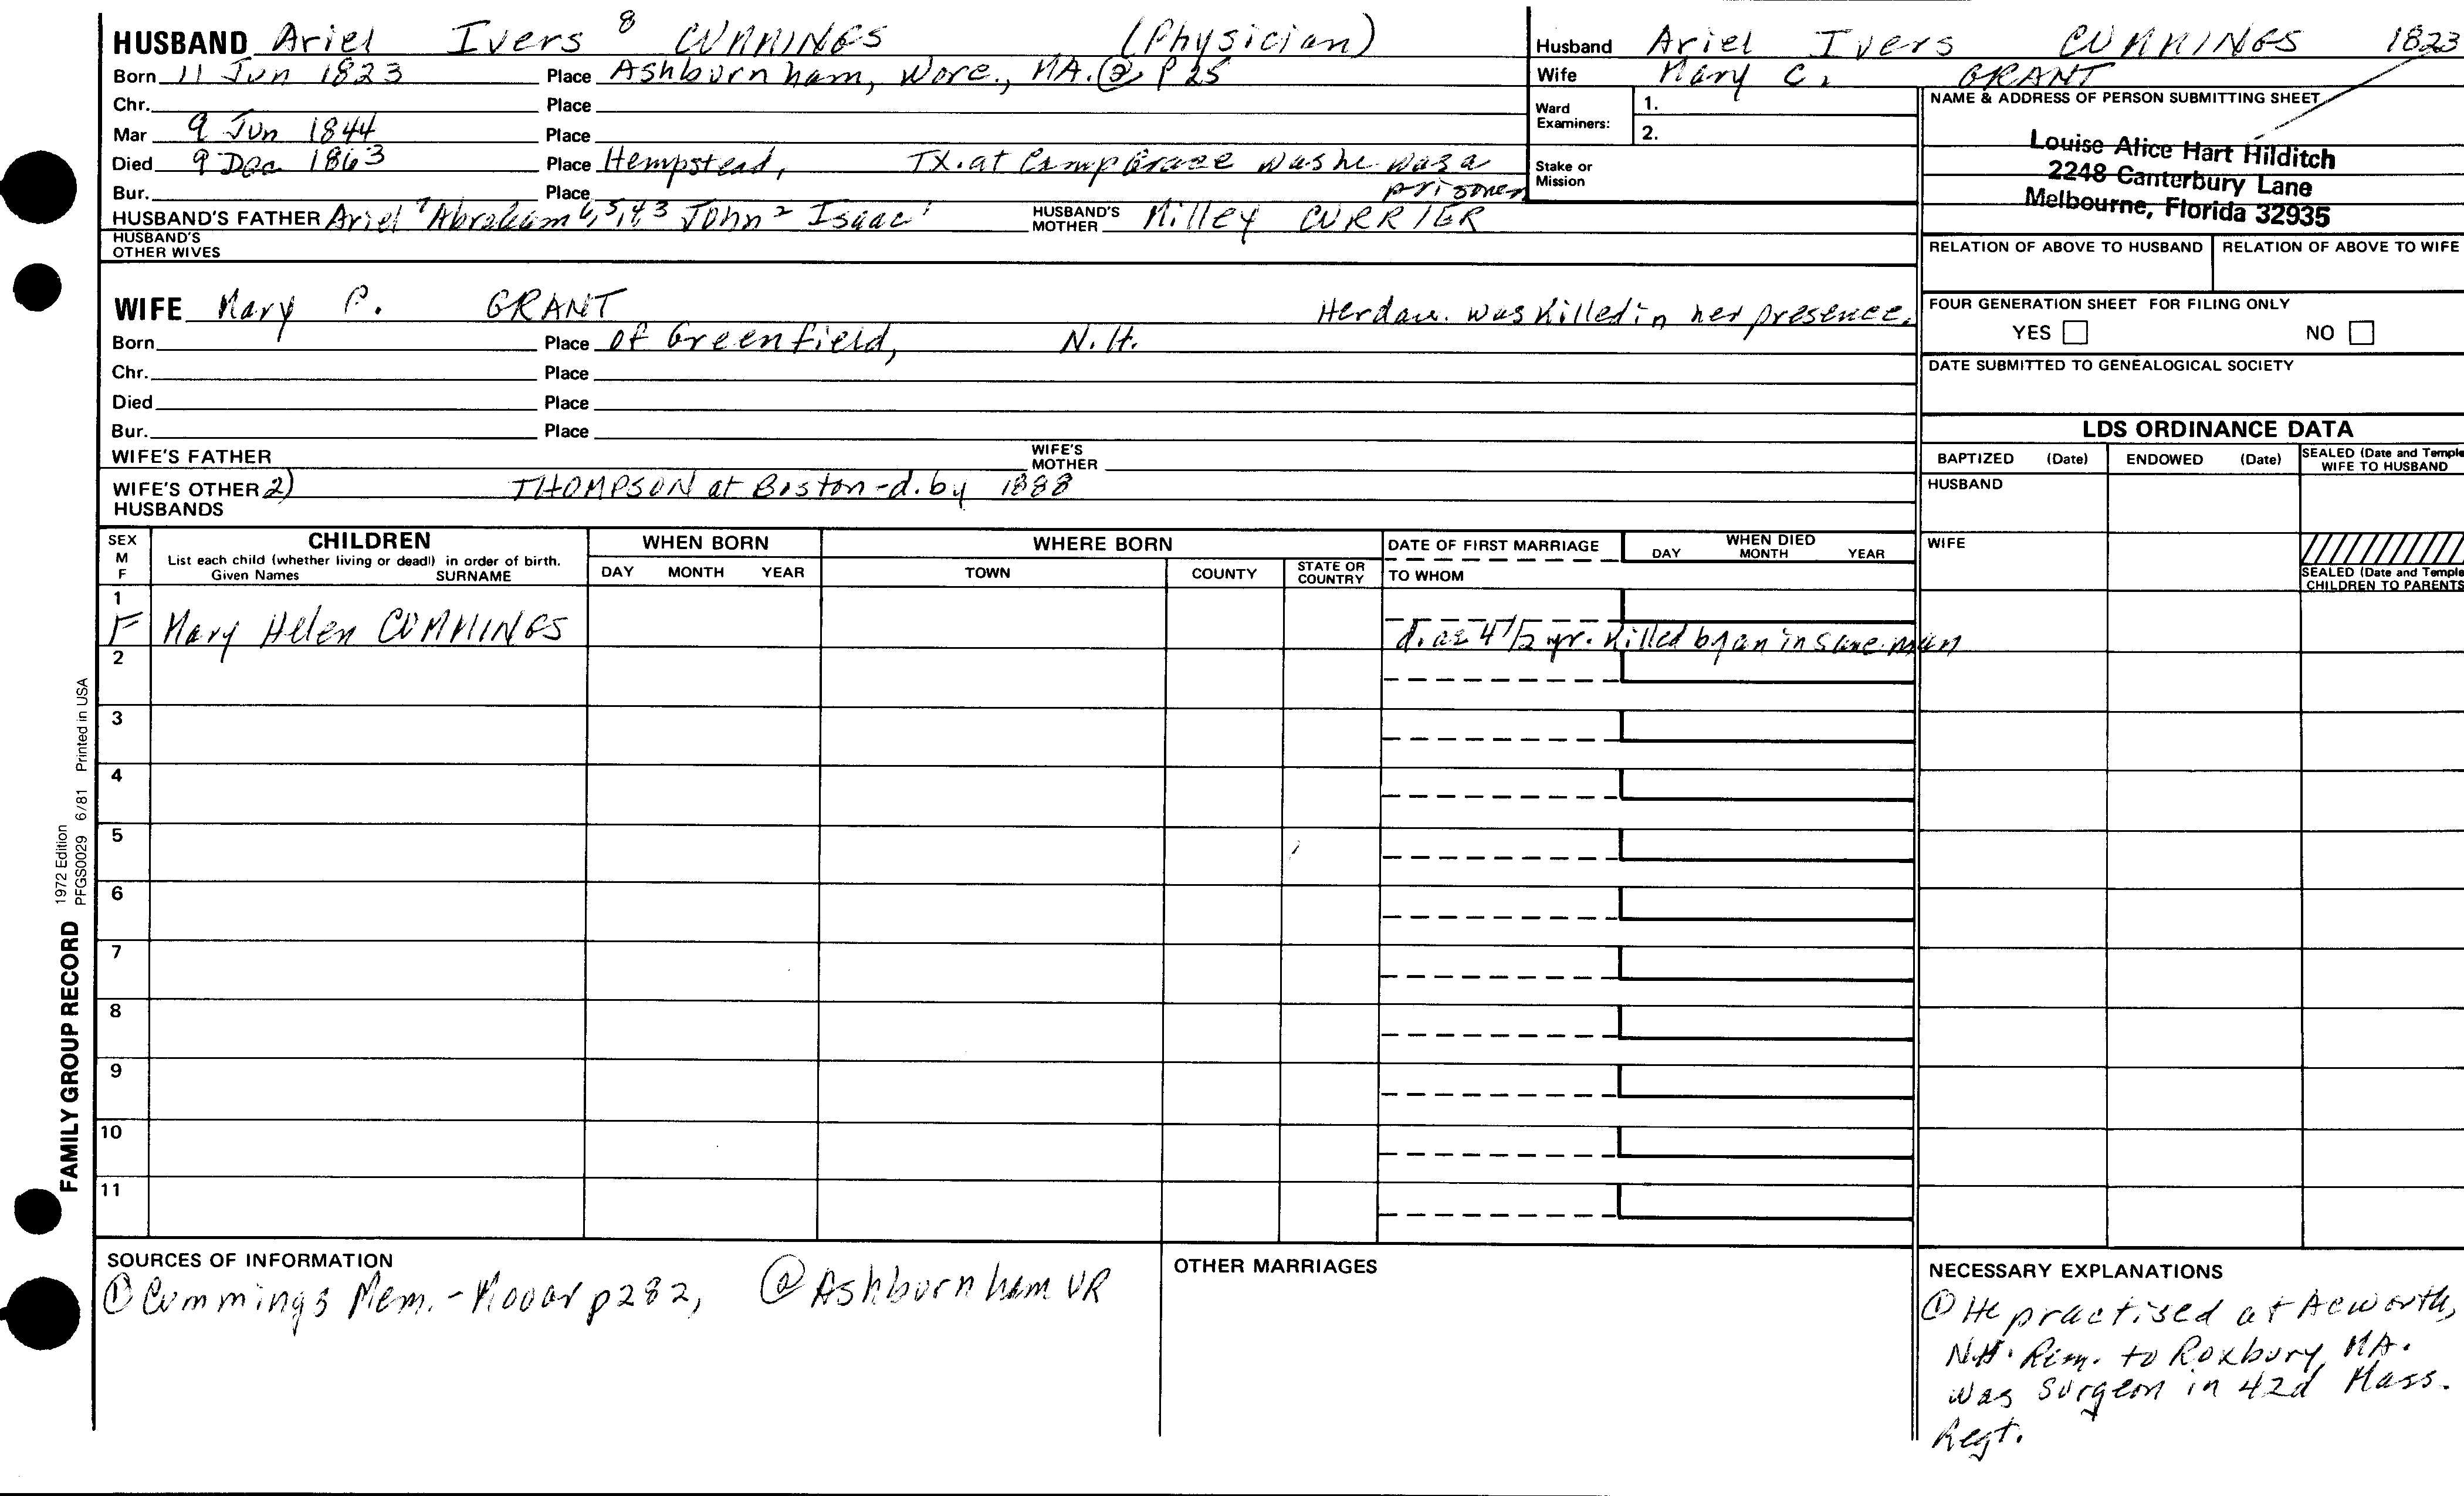 HUSBAND Ariel Ivers 8 CUMMINGS (Physician)
Born 11 Jun 1823 Place Ashburnham, Worc., MA. ② P 25
Chr. Place
Mar 9 Jun 1844 Place
Died 9 Dec 1863 Place Hempstead, TX. at Camp was he was a
prisoner
Bur. Place
HUSBAND'S FATHER Ariel 7 Abraham 6,5,4,3 John 2 Isaac 1 HUSBAND'S MOTHER Milley CURRIER
HUSBAND'S OTHER WIVES
WIFE Mary C. GRANT Her dau. was killed in her presence.
Born Place of Greenfield, N.H.
Chr. Place
Died Place
Bur. Place
WIFE'S FATHER WIFE'S MOTHER
WIFE'S OTHER HUSBANDS 2) THOMPSON at Boston - d. by 1888
Husband Ariel Ivers CUMMINGS 1823
Wife Mary C. GRANT
Ward Examiners: 1.
2.
Stake or Mission
NAME & ADDRESS OF PERSON SUBMITTING SHEET
Louise Alice Hart Hilditch
2248 Canterbury Lane
Melbourne, Florida 32935
RELATION OF ABOVE TO HUSBAND RELATION OF ABOVE TO WIFE
FOUR GENERATION SHEET FOR FILING ONLY
YES NO
DATE SUBMITTED TO GENEALOGICAL SOCIETY
LDS ORDINANCE DATA
BAPTIZED (Date) ENDOWED (Date) SEALED (Date and Temple
WIFE TO HUSBAND
HUSBAND
WIFE
SEALED (Date and Temple
CHILDREN TO PARENTS
SEX
M
F
CHILDREN
List each child (whether living or dead) in order of birth.
Given Names SURNAME
WHEN BORN
DAY MONTH YEAR
WHERE BORN
TOWN COUNTY STATE OR COUNTRY
DATE OF FIRST MARRIAGE
TO WHOM
WHEN DIED
DAY MONTH YEAR
1
F Mary Helen CUMMINGS d. ae 4 1/2 yr. killed by an insane man
2
3
4
5
6
7
8
9
10
11
SOURCES OF INFORMATION
① Cummings Mem. - Mooar p 282, ② Ashburnham VR
OTHER MARRIAGES
NECESSARY EXPLANATIONS
① He practised at Acworth,
N.H. Rem. to Roxbury, MA.
was surgeon in 42d Mass.
Regt.
FAMILY GROUP RECORD
1972 Edition
PFGS0029 6/81 Printed in USA